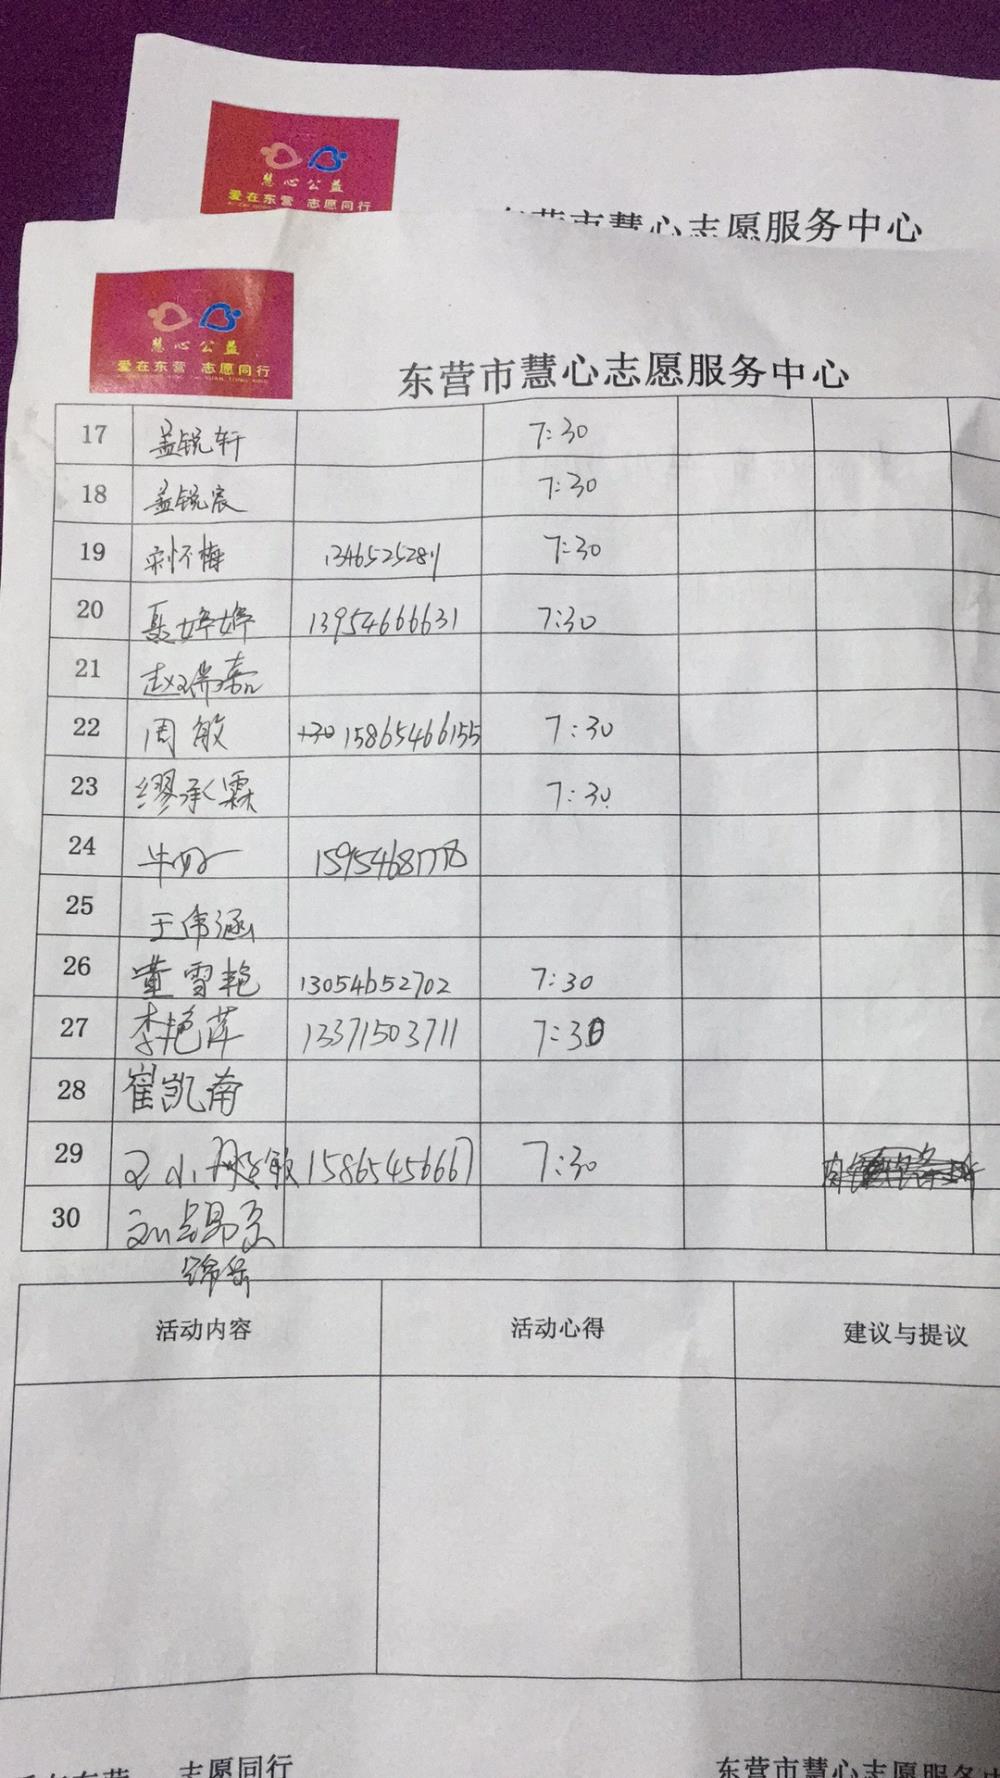 慧心公益
爱在东营 志愿同行
东营市慧心志愿服务中心
慧心公益
爱在东营 志愿同行
东营市慧心志愿服务中心
17 孟锐轩 7:30
18 孟锐宸 7:30
19 刘怀梅 7:30
20 聂婷婷 13954666631 7:30
21 赵瑞嘉
22 周敏 15865466155 7:30
23 缪承霖 7:30
24
25 王伟涵
26 董雪艳 13054652702 7:30
27 李艳萍 13371503711 7:30
28 崔凯南
29 15865456667 7:30
30
活动内容 活动心得 建议与提议
志愿同行 东营市慧心志愿服务中